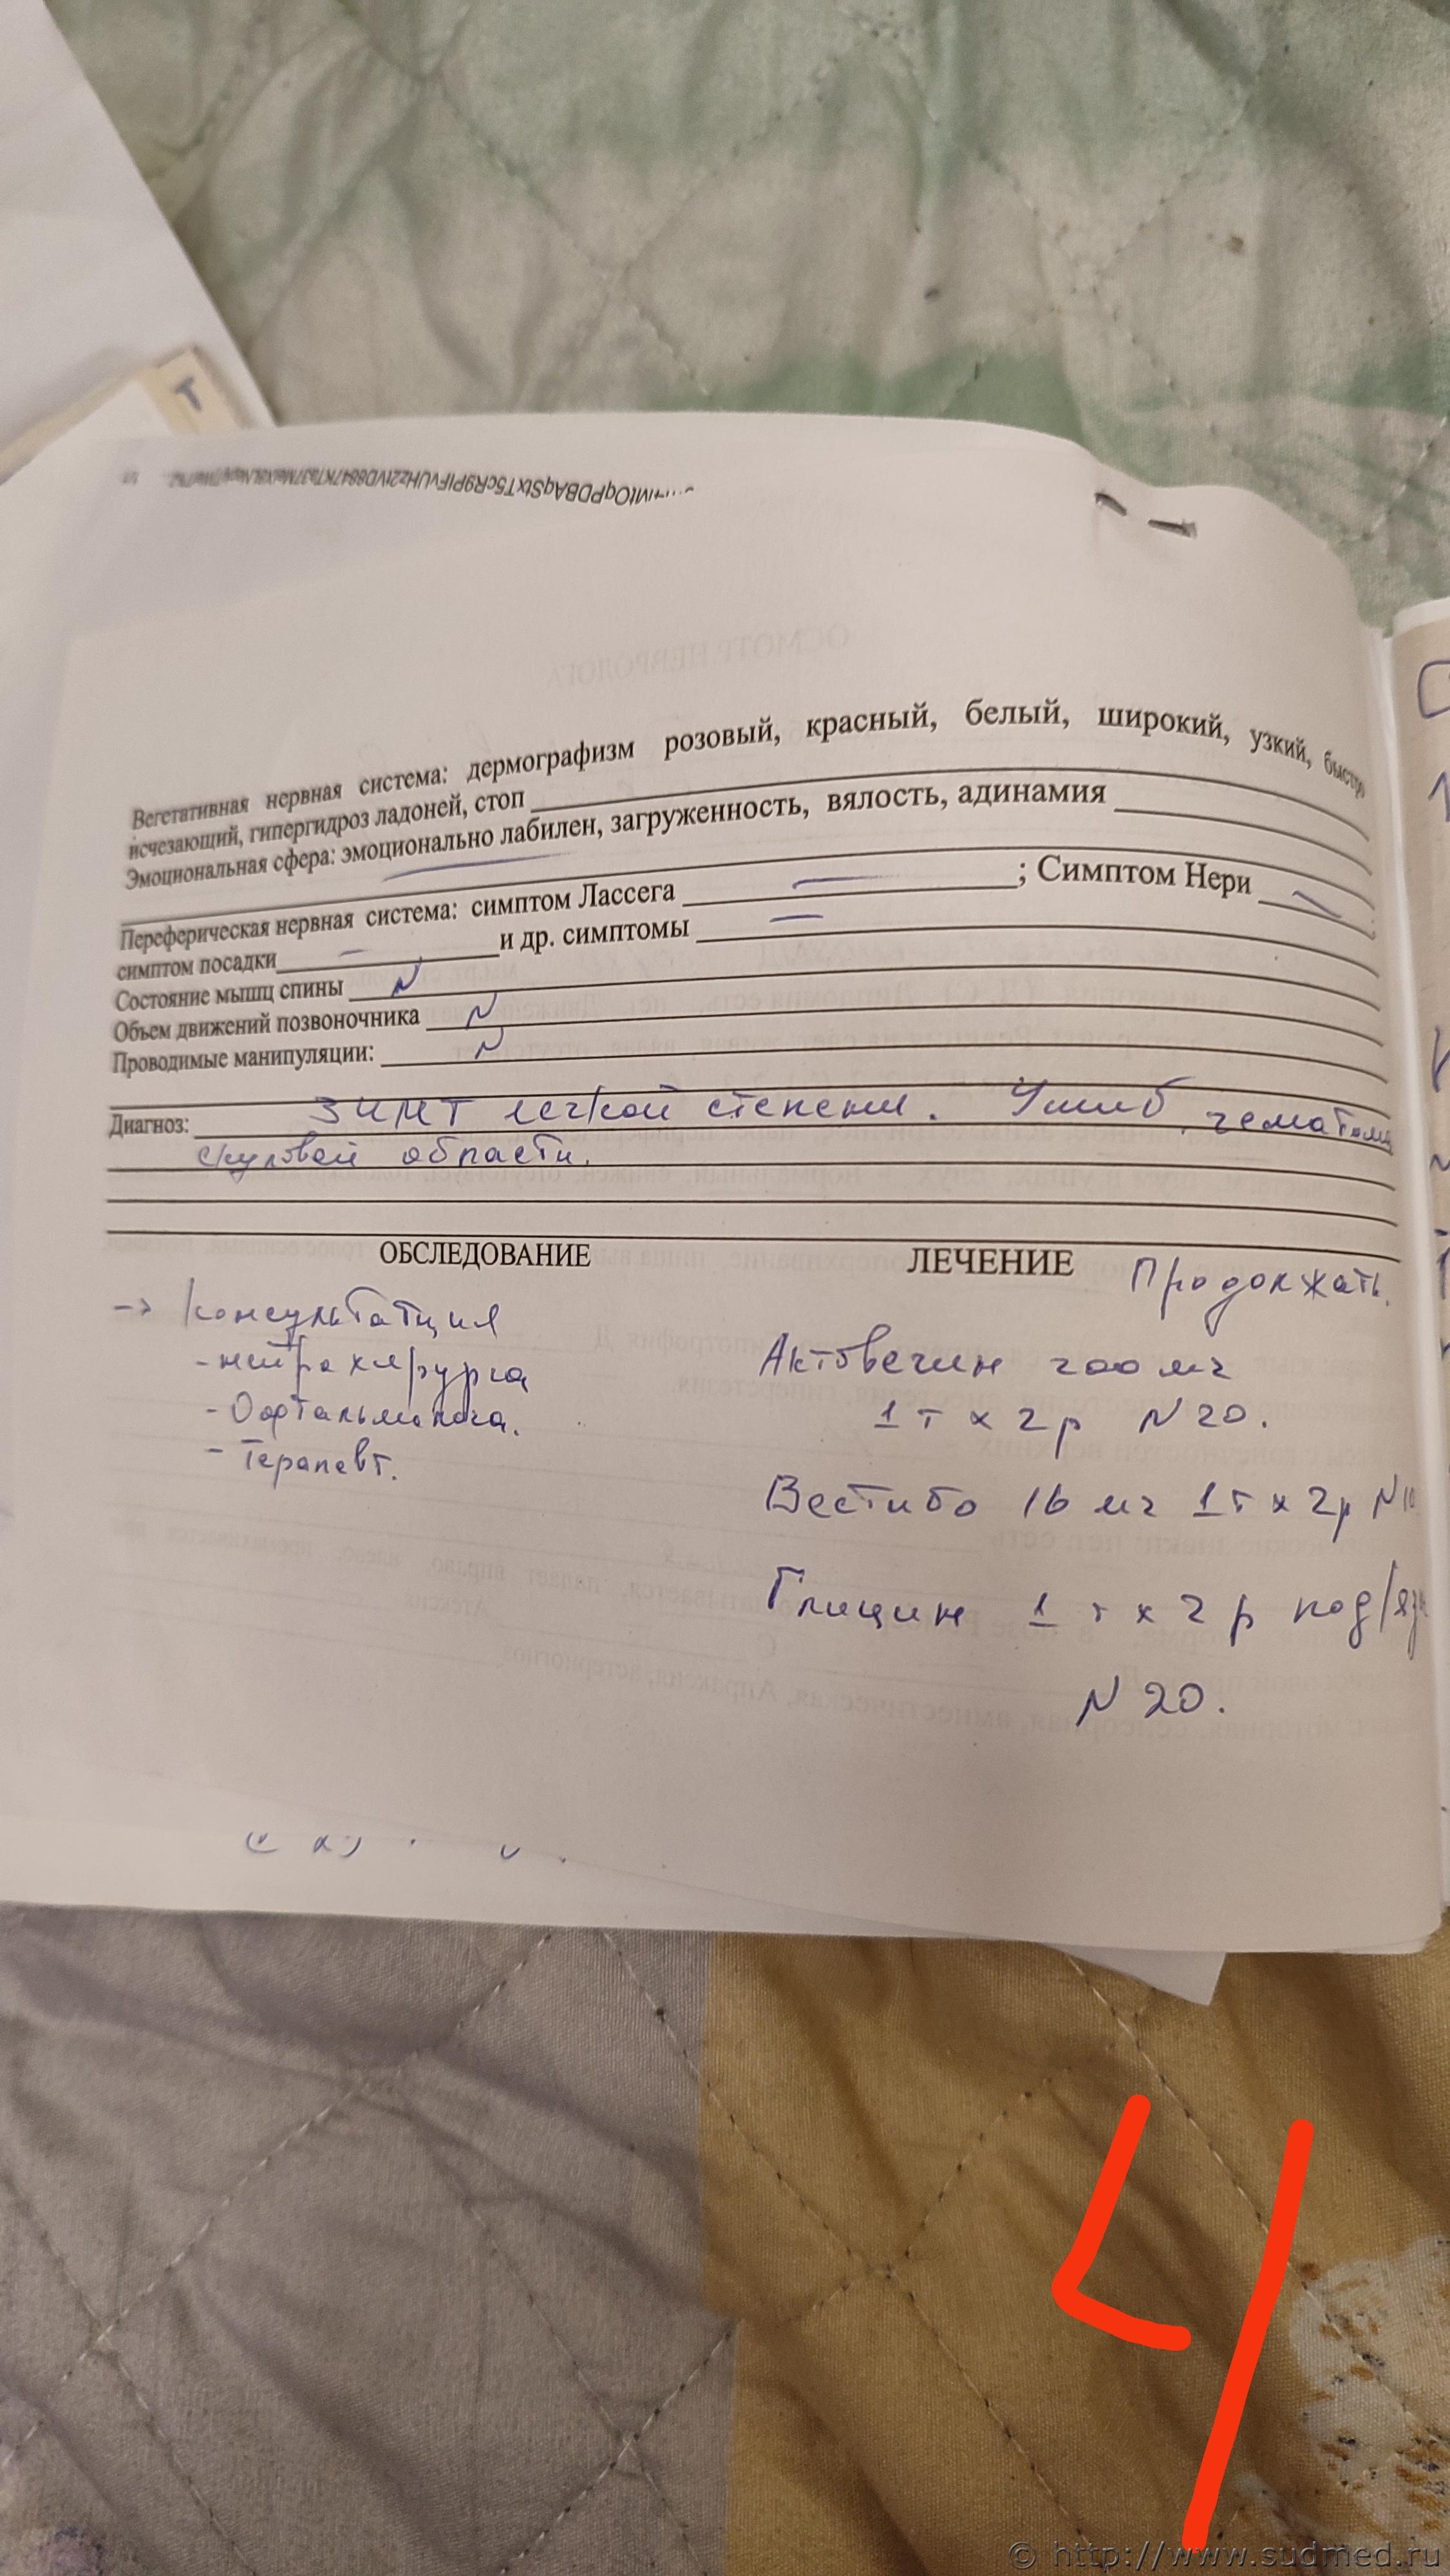 Т
Вегетативная нервная система: дермографизм розовый, красный, белый, широкий, узкий, быстро
исчезающий, гипергидроз ладоней, стоп
Эмоциональная сфера: эмоционально лабилен, загруженность, вялость, адинамия
Переферическая нервная система: симптом Лассега – ; Симптом Нери –
симптом посадки – и др. симптомы –
Состояние мышц спины N
Объем движений позвоночника N
Проводимые манипуляции: N
Диагноз: ЗЧМТ легкой степени. Ушиб, гематома
скуловой области.
ОБСЛЕДОВАНИЕ
-> Консультация
- нейрохирурга
- Офтальмолога.
- Терапевт.
ЛЕЧЕНИЕ Продолжать.
Актовегин 200 мг
1 т х 2 р N 20.
Вестибо 16 мг 1 т х 2 р N 10
Глицин 1 т х 2 р под/яз
N 20.
4
© http://www.sudmed.ru